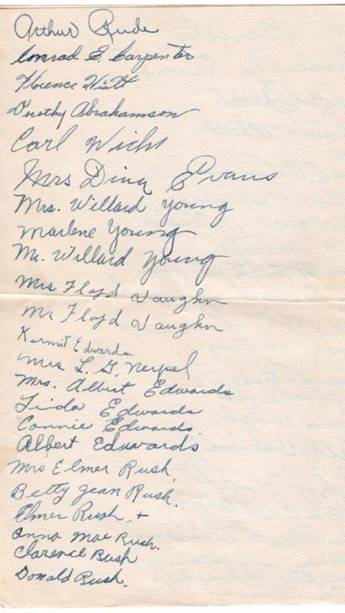 Arthur Rude
Conrad E. Carpenter
Florence Hiatt
Dorothy Abrahamson
Carl Wicht
Mrs Dina Evans
Mrs. Willard Young
Marlene Young
Mr. Willard Young
Mrs Floyd Vaughn
Mr Floyd Vaughn
Kermit Edwards
Mrs L. G. Nerpel
Mrs. Albert Edwards
Linda Edwards
Connie Edwards
Albert Edwards
Mrs Elmer Rush
Betty Jean Rush.
Elmer Rush +
Anna Mae Rush.
Clarence Rush
Donald Rush.